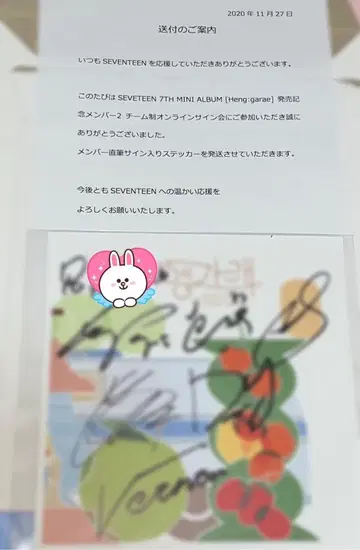 2020 年 11 月 27 日
送付のご案内
いつも SEVENTEEN を応援していただきありがとうございます。
このたびは SEVETEEN 7TH MINI ALBUM [Heng:garae] 発売記
念メンバー2 チーム制オンラインサイン会にご参加いただき誠に
ありがとうございました。
メンバー直筆サイン入りステッカーを発送させていただきます。
今後とも SEVENTEEN への温かい応援を
よろしくお願いいたします。
Vernon